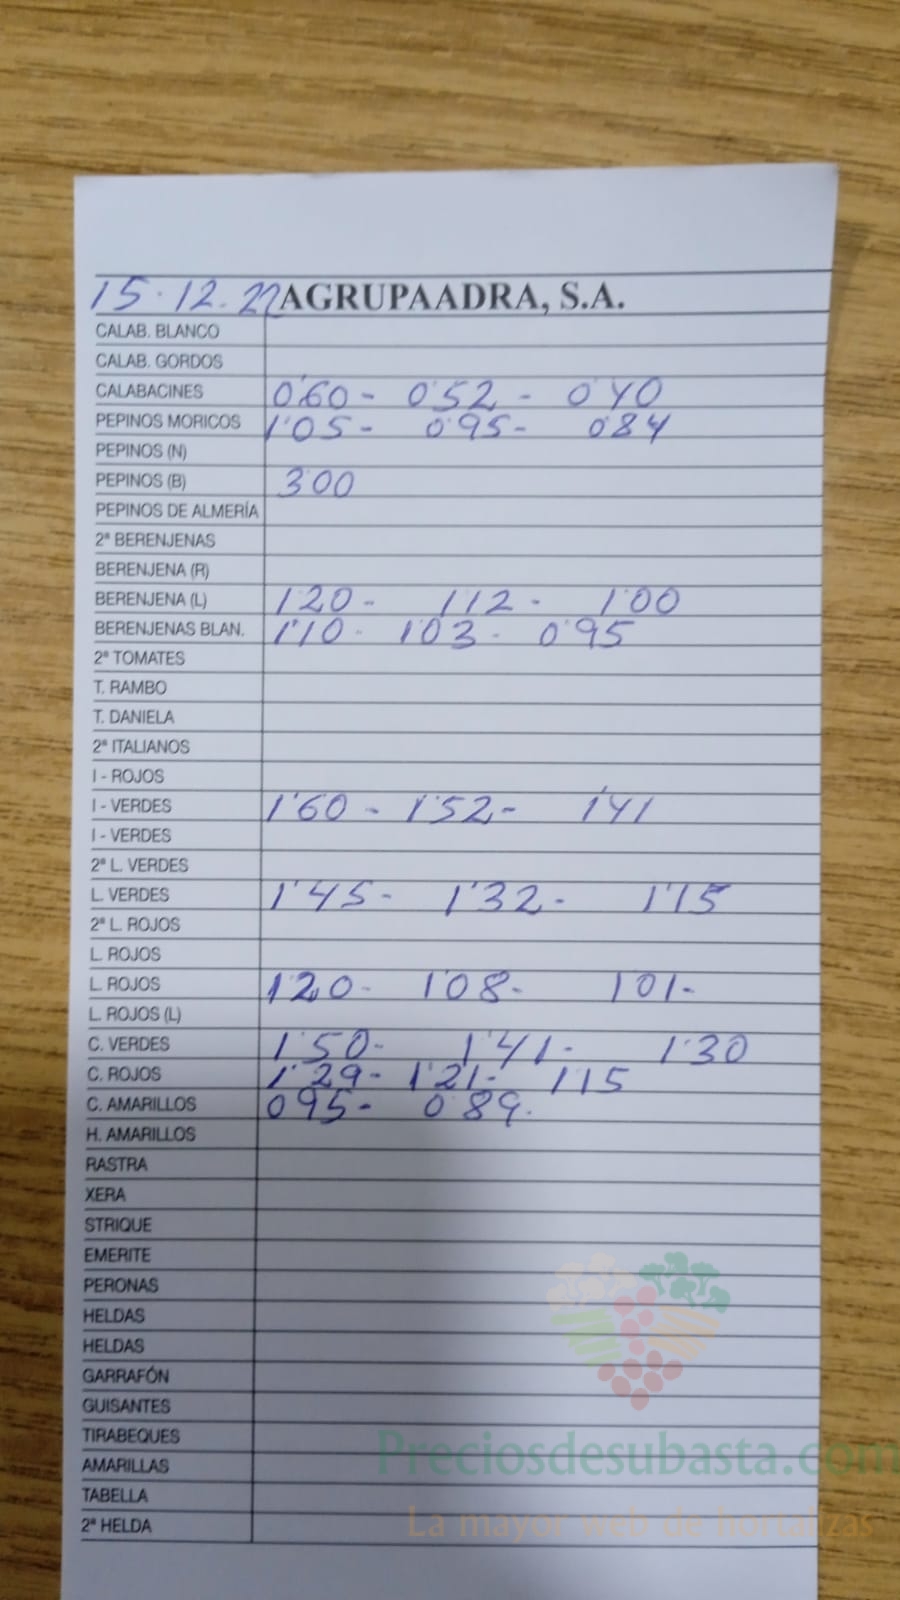 15.12.22 AGRUPAADRA, S.A.
CALAB. BLANCO
CALAB. GORDOS
CALABACINES 0'60- 0'52- 0'40
PEPINOS MORICOS 1'05- 0'95- 0'84
PEPINOS (N)
PEPINOS (B) 300
PEPINOS DE ALMERÍA
2ª BERENJENAS
BERENJENA (R)
BERENJENA (L) 1'20- 1'12- 1'00
BERENJENAS BLAN. 1'10- 1'03- 0'95
2ª TOMATES
T. RAMBO
T. DANIELA
2ª ITALIANOS
I - ROJOS
I - VERDES 1'60- 1'52- 1'41
I - VERDES
2ª L. VERDES
L. VERDES 1'45- 1'32- 1'15
2ª L. ROJOS
L. ROJOS
L. ROJOS 1'20- 1'08- 1'01-
L. ROJOS (L)
C. VERDES 1'50- 1'41- 1'30
C. ROJOS 1'29- 1'21- 1'15
C. AMARILLOS 0'95- 0'89.
H. AMARILLOS
RASTRA
XERA
STRIQUE
EMERITE
PERONAS
HELDAS
HELDAS
GARRAFÓN
GUISANTES
TIRABEQUES
AMARILLAS
TABELLA
2ª HELDA
Preciosdesubasta.com
La mayor web de hortalizas